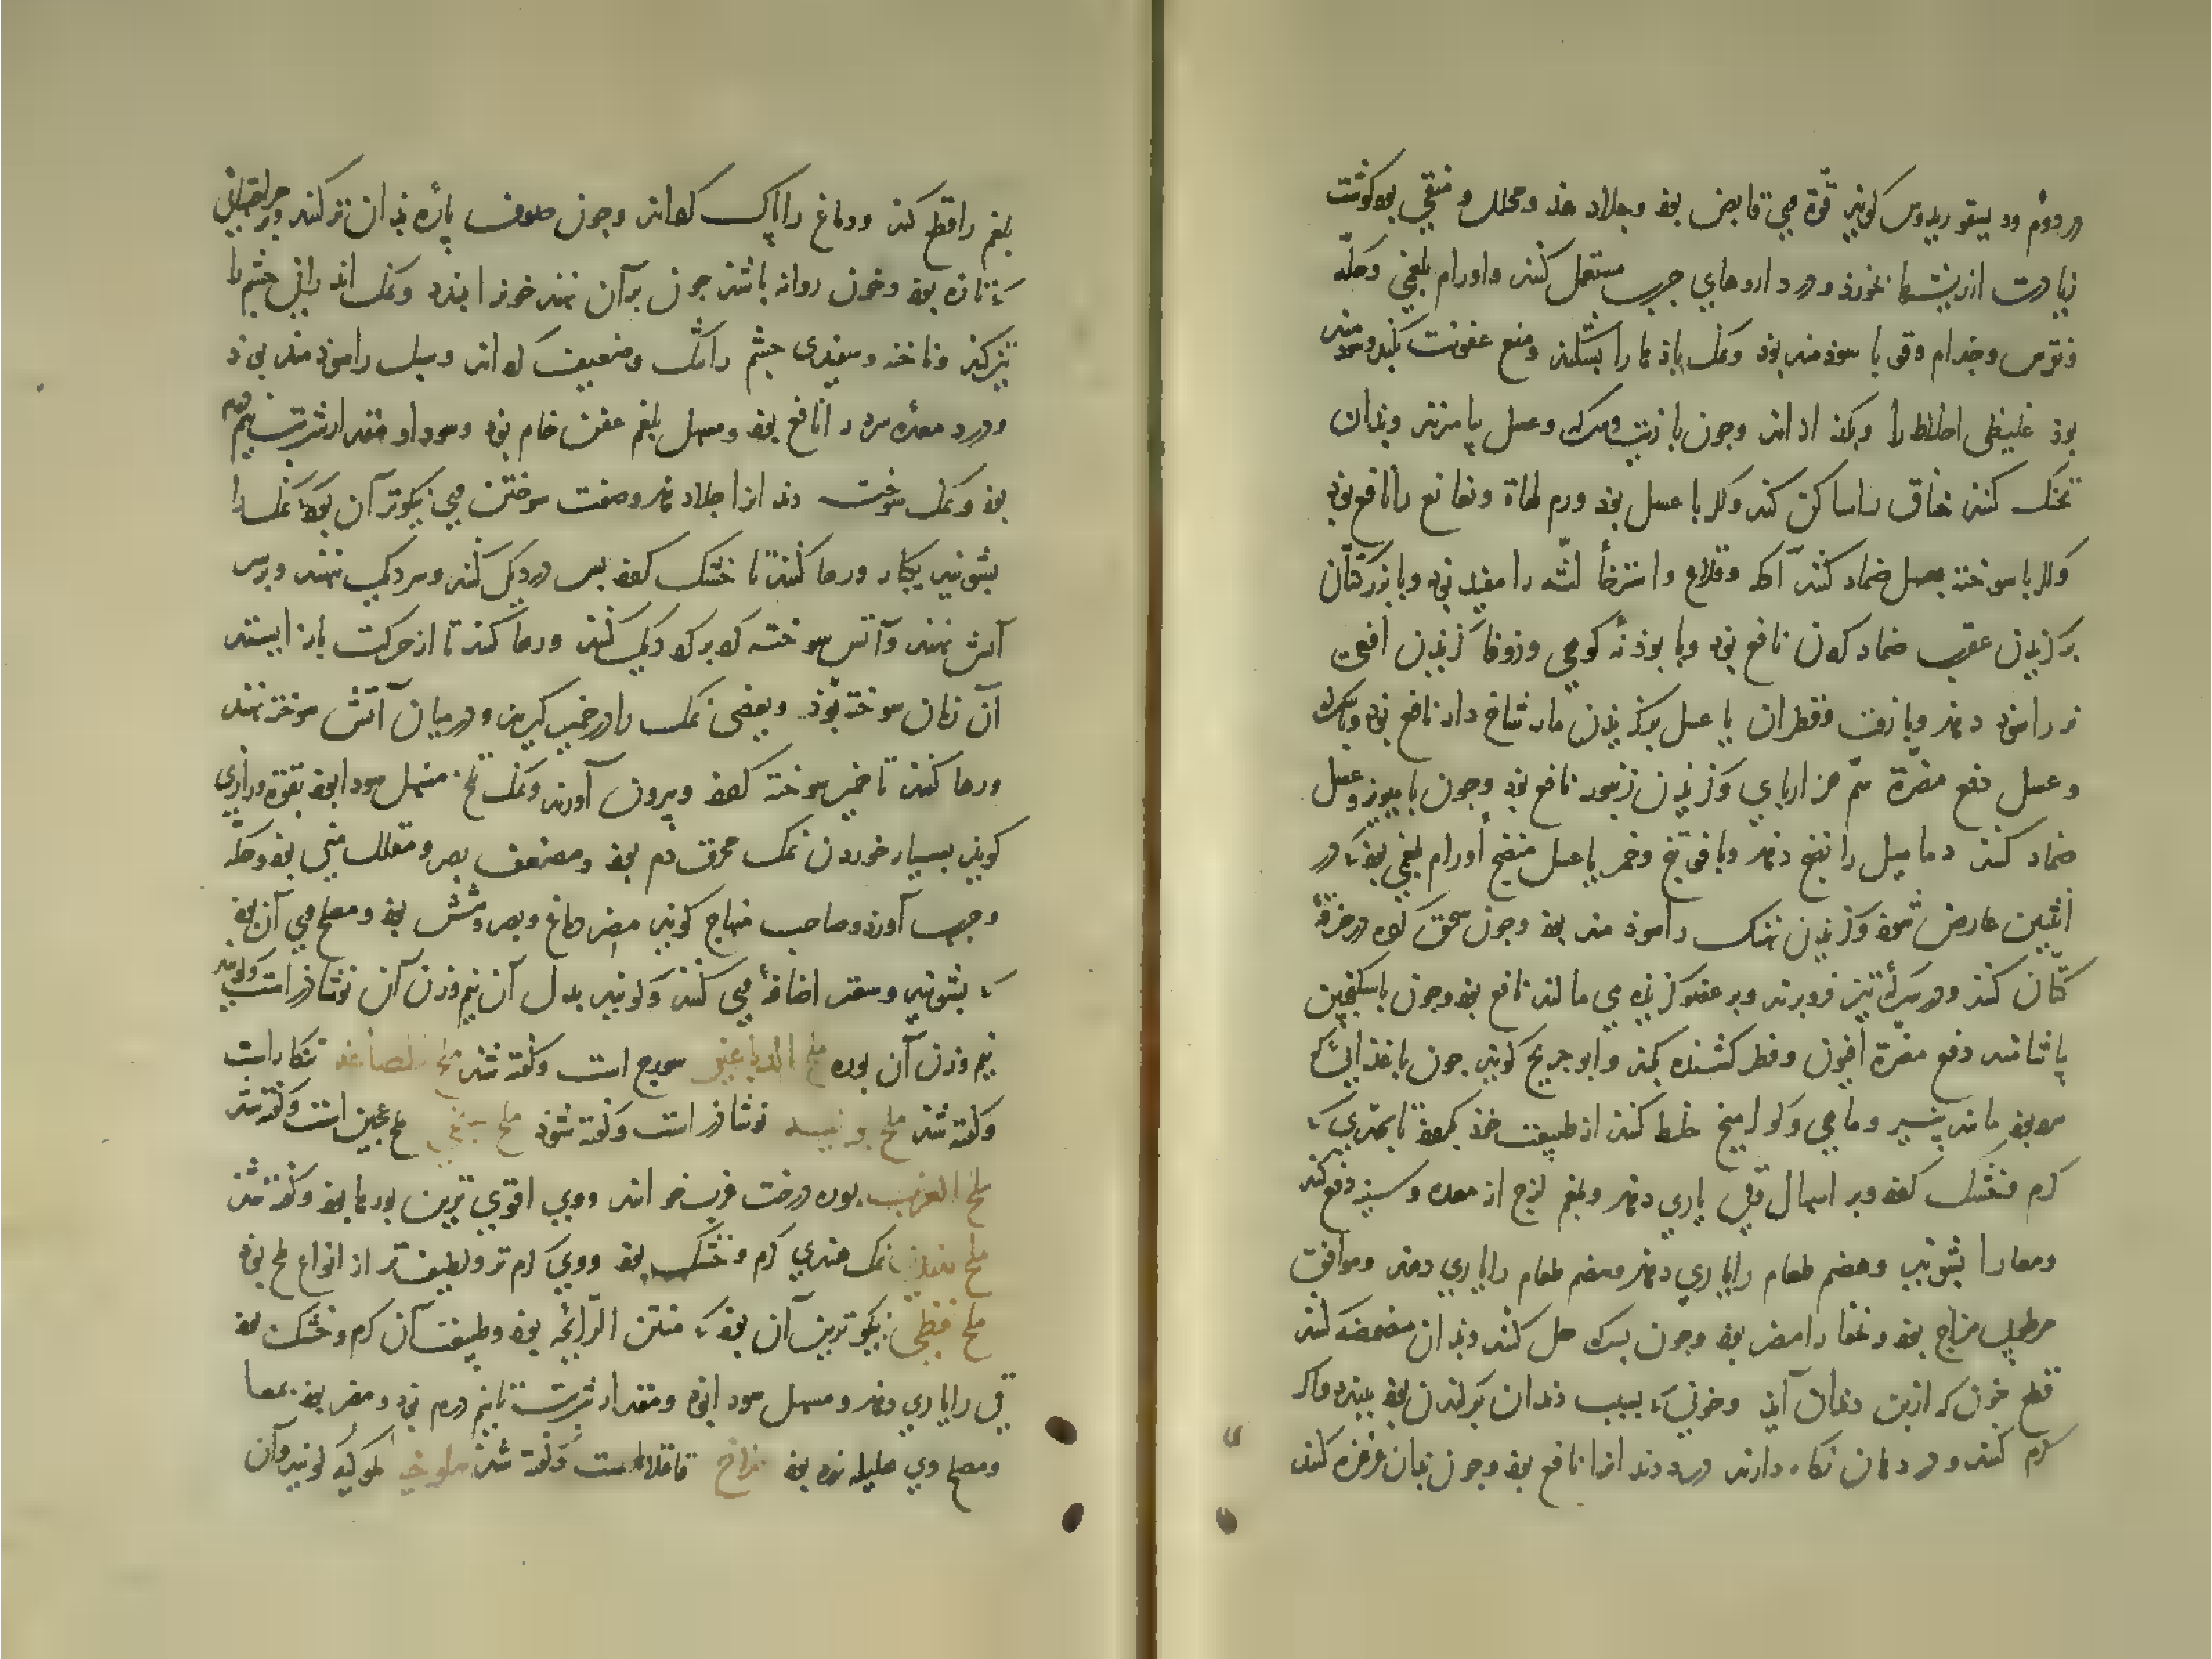 در دوم ودیسقوریدوس کویذ قوة وی قابض بود وجلاد هذ ومحلل و منقی بود کوشت
زیادت از ریشها بخورذ ودر داروهای جرب مستعمل کنند واورام بلغمی وحکه
ونقرس وجذام وقوبا سودمند بوذ ونمک باذها را بشکند ومنع عفونت بکند وسودمند
بوذ غلیظی اخلاط را وبکذازاند وجون با زیت وسرکه وعسل بیامیزند وبدان
تحنک کنند خناق را ساکن کند وکر با عسل بوذ ورم لهاة ونغانغ را نافع بوذ
وکر با سوخته بعسل ضماد کنند آکله وقلاع واسترخأ لثه را مفید بوذ وبا بزرکتان
برکزیدن عقرب ضماد کردن نافع بوذ وبا بوذنه کوهی وزوفا کزیدن افعی
نر را سوذ دهد وبا زفت وقطران یا عسل برکزیدن مار شاخ دار نافع بوذ وبا سرکه
وعسل دفع مضرة سم هزارپای وکزیدن زنبور نافع بوذ وجون با میویز وعسل
ضماد کنند دمامیل را نضج دهد وبا فوتنج وخمر یا عسل منضج اورام بلغمی بوذ که در
انثیین عارض شود وکزیدن نهنک را سوذمند بوذ وجون سحق کرده در خرقهٔ
کتان کنند ودر سرکهٔ تیز فروبرند وبر عضو کزیده می مالند نافع بوذ وجون با سکنجبین
بیاشامند دفع مضرة افیون وفطر کشنده بکند وابوجریح کویذ جون با غذایی که
سرد بوذ مانند پنیر وماهی وکوامیخ خلط کنند از طبیعت خوذ بکردد تا بحدی که
کرم وخشک کردد وبر اسهال وقی یاری دهد وبلغم لزج از معده وسینه دفع کند
ومعا را بشویذ وهضم طعام را یاری دهد وهضم طعام را یاری دهد وموافق
مرطوب مزاج بوذ ونحفا را مضر بوذ وجون بسرکه حل کنند وبدان مضمضه کنند
قطع خون که از بن دندان آیذ وخونی که بسبب دندان برکندن بوذ ببندد واکر
کرم کنند ودر دهان نکاه دارند درد دندانرا نافع بوذ وجون بدان غرغره کنند
بلغم را قطع کند ودماغ را پاک کرداند وجون صوف پارهٔ بذان تر کنند وبر جراحتهائی
که تازه بوذ وخون روانه باشذ جون برآن نهند خونرا ببندد ونمک اندرانی جشم را
تیز کند وناخنه وسفیدی جشم را تنک وضعیف کرداند وسبل را سوذمند بوذ
ودرد معده سرد را نافع بوذ ومسهل بلغم عفن خام بوذ وسودا ومقدار شربت نیم درهم
بوذ ونمک سوخته دندانرا جلاد هذ وصفت سوختن وی نیکوتر آن بوذ که نمک را
بشویند یکبار ورها کنند تا خشک کردد بس در دیکی کنند وسر دیک نهند وبر سر
آتش نهند وآتش سوخته کرد بر کرد دیک کنند ورها کنند تا از حرکت باز ایستد
آن زمان سوخته بوذ وبعضی نمک را در خمیر کیرند ودرمیان آتش سوخته نهند
ورها کنند تا خمیر سوخته کردد وبیرون آورند ونمک تلخ مسهل سودا بوذ بقوة ورازی
کویذ بسیار خوردن نمک محرق دم بوذ ومضعف بصر ومقلل منی بوذ وحکه
وجرب آورد وصاحب منهاج کویذ مضر دماغ وبصر وشش بوذ ومصلح وی آن بوذ
که بشویند وسعتر اضافهٔ وی کنند وکویند بدل آن نیم وزن آن نوشاذر است وکویند
نیم وزن آن بوره ملح الدباغین سورج است وکفته شذ ملح الصاغه تنکار است
وکفته شذ ملح بونیسه نوشاذر است وکفته شوذ ملح سبخی ملح عجین است وکفته شذ
ملح الغرب بوره درخت غرب خوانند ووی اقوی ترین بورها بوذ وکفته شذ
ملح هندی نمک هندی کرم وخشک بوذ ووی کرم تر ولطیف تر از انواع ملح بوذ
ملح نفطی نیکوترین آن بوذ که منتن الرایحه بوذ وطبیعت آن کرم وخشک بوذ
قی را یاری دهد ومسهل سودا بوذ ومقدار شربت تا نیم درم بوذ ومضر بوذ بمعا
ومصلح وی هلیله زرد بوذ ملاح قاقلاست وکفته شذ ملوخیا ملوکیه کویند وآن